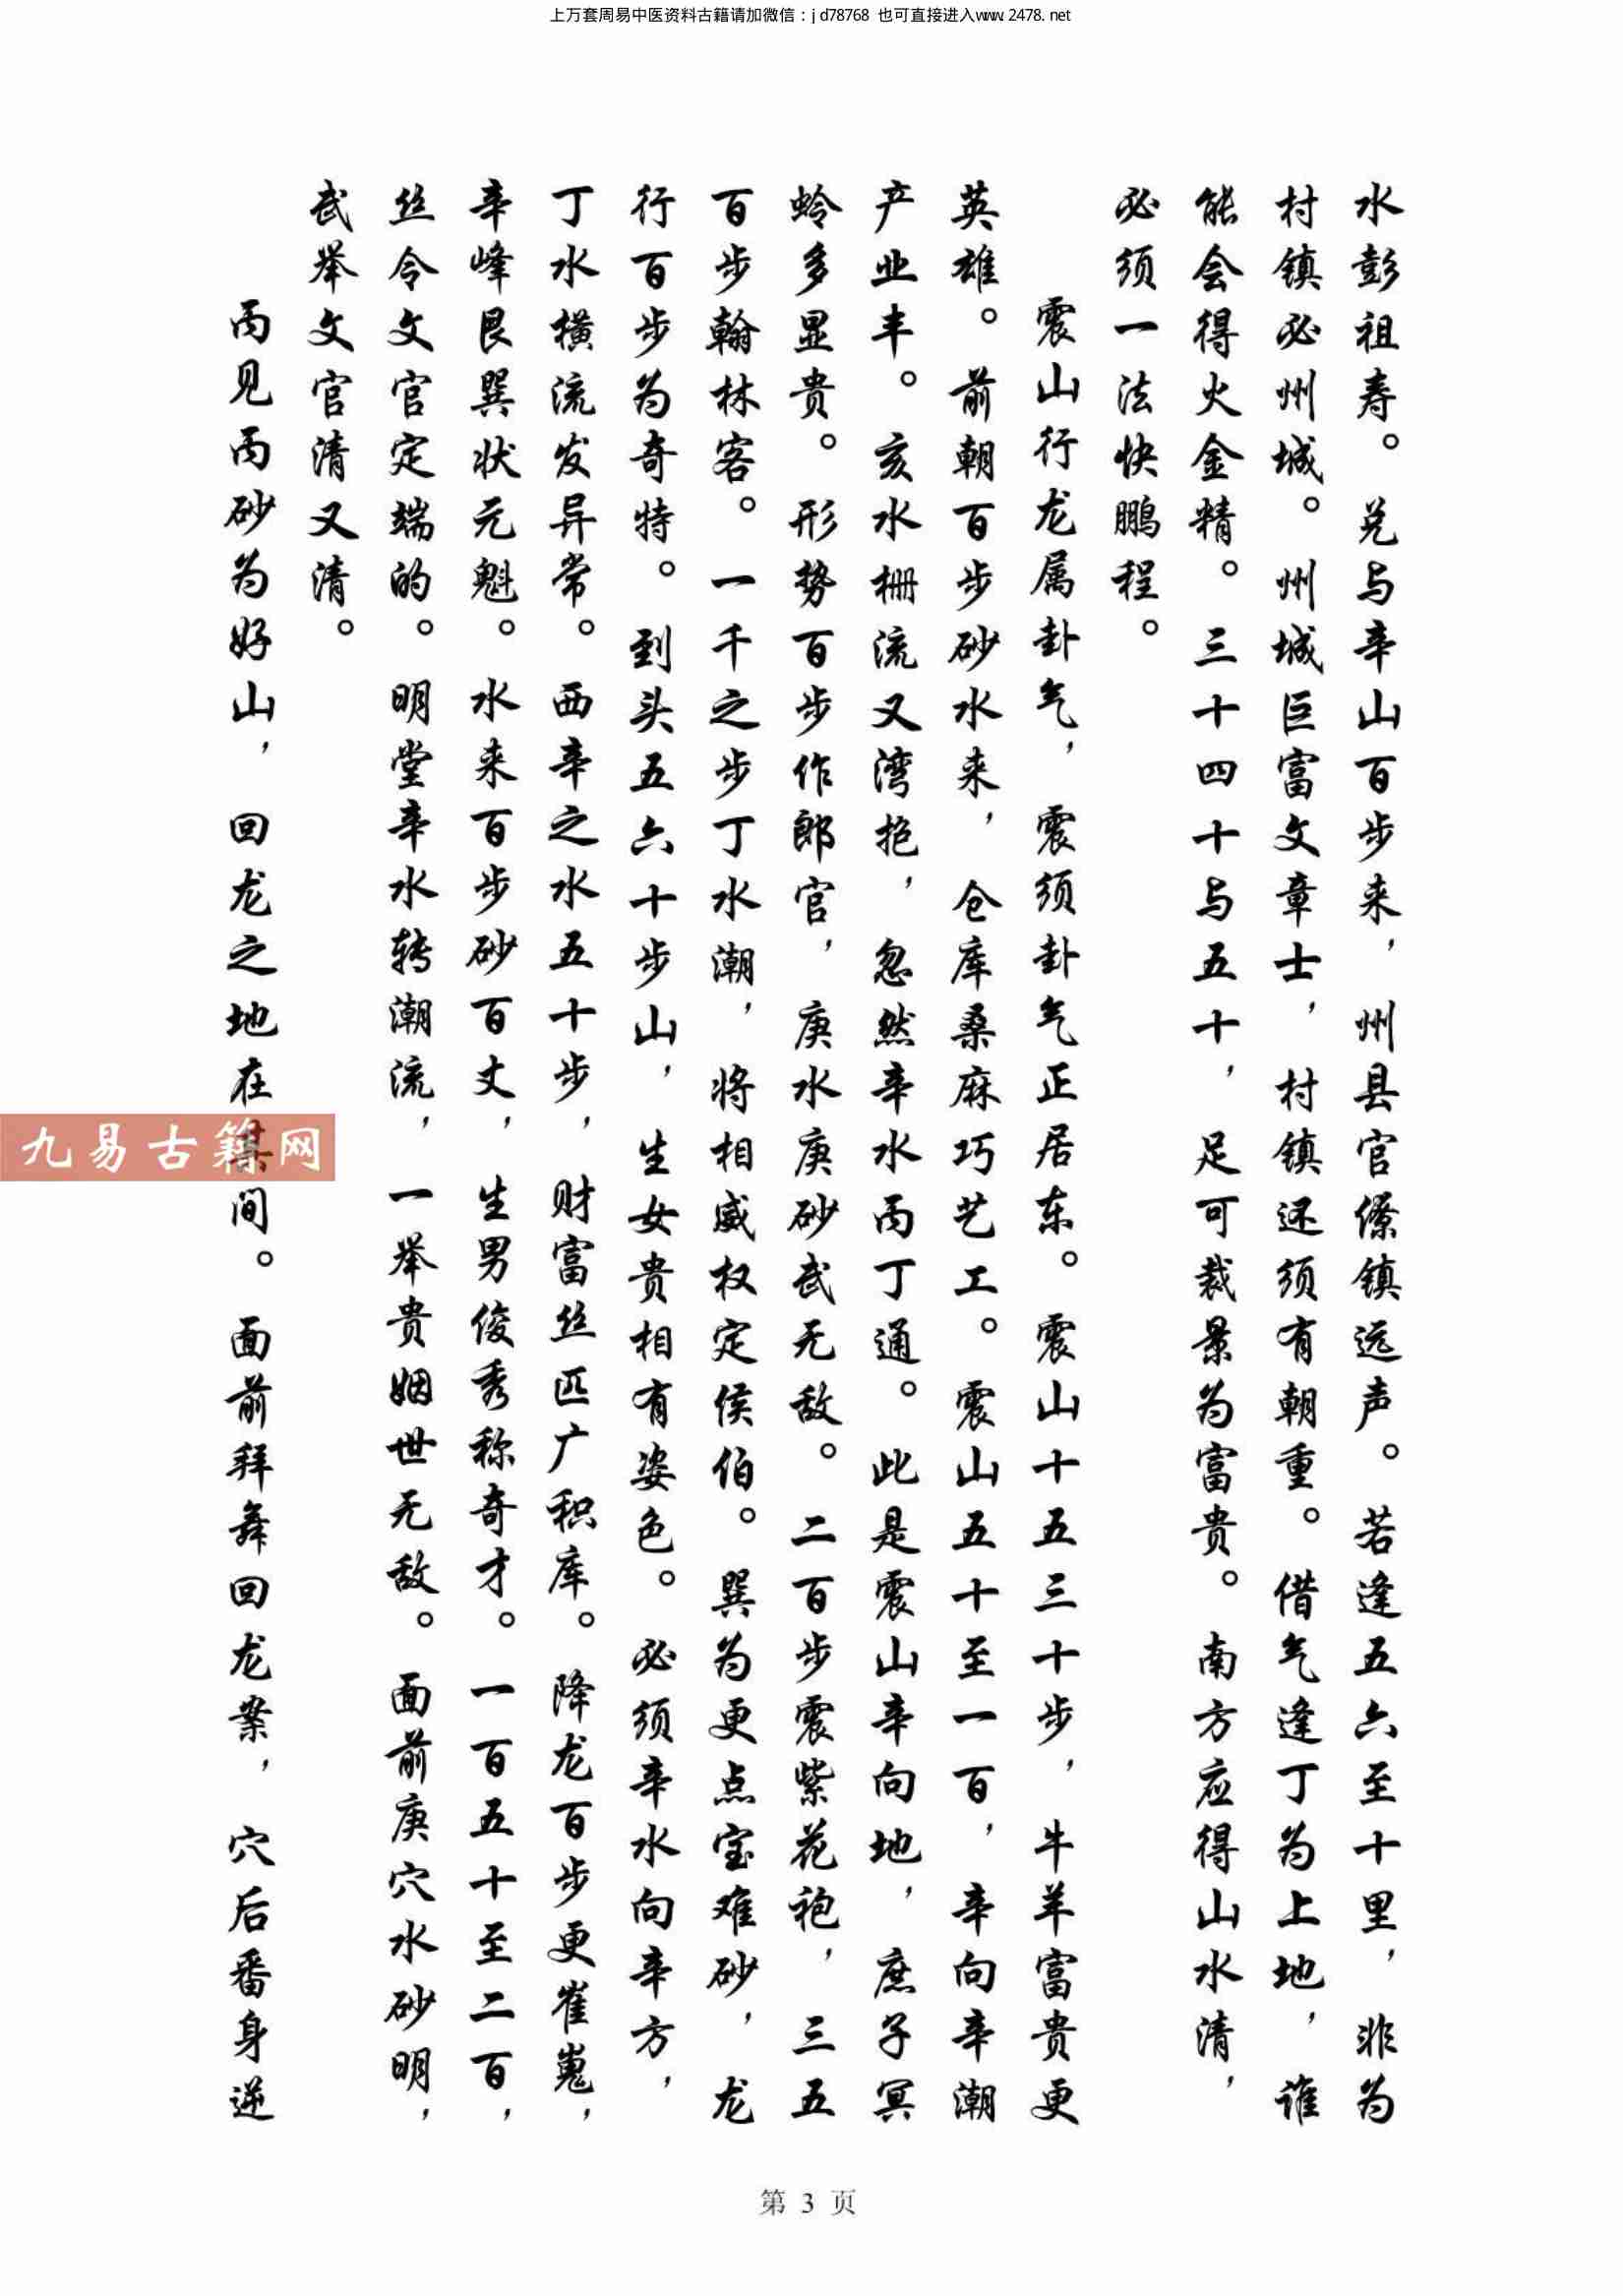 上万套周易中医资料古籍请加微信：jd78768 也可直接进入www.2478.net
水彭祖寿。兑与辛山百步来，州县官僚镇远声。若逢五六至十里，非为
村镇必州城。州城巨富文章士，村镇还须有朝重。借气逢丁为上地，谁
能会得火金精。三十四十与五十，足可裁景为富贵。南方应得山水清，
必须一法快鹏程。
震山行龙属卦气，震须卦气正居东。震山十五三十步，牛羊富贵更
英雄。前朝百步砂水来，仓库桑麻巧艺工。震山五十至一百，辛向辛潮
产业丰。亥水栅流又湾抱，忽然辛水丙丁通。此是震山辛向地，庶子冥
蛉多显贵。形势百步作郎官，庚水庚砂武无敌。二百步震紫花袍，三五
百步翰林客。一千之步丁水潮，将相威权定侯伯。巽为更点宝难砂，龙
行百步为奇特。到头五六十步山，生女贵相有姿色。必须辛水向辛方，
丁水横流发异常。西辛之水五十步，财富丝匹广积库。降龙百步更崔嵬，
辛峰艮巽状元魁。水来百步砂百丈，生男俊秀称奇才。一百五十至二百，
丝令文官定端的。明堂辛水转潮流，一举贵姻世无敌。面前庚穴水砂明，
武举文官清又清。
丙见丙砂为好山，回龙之地在其间。面前拜舞回龙案，穴后番身逆
九易古籍网
第 3 页